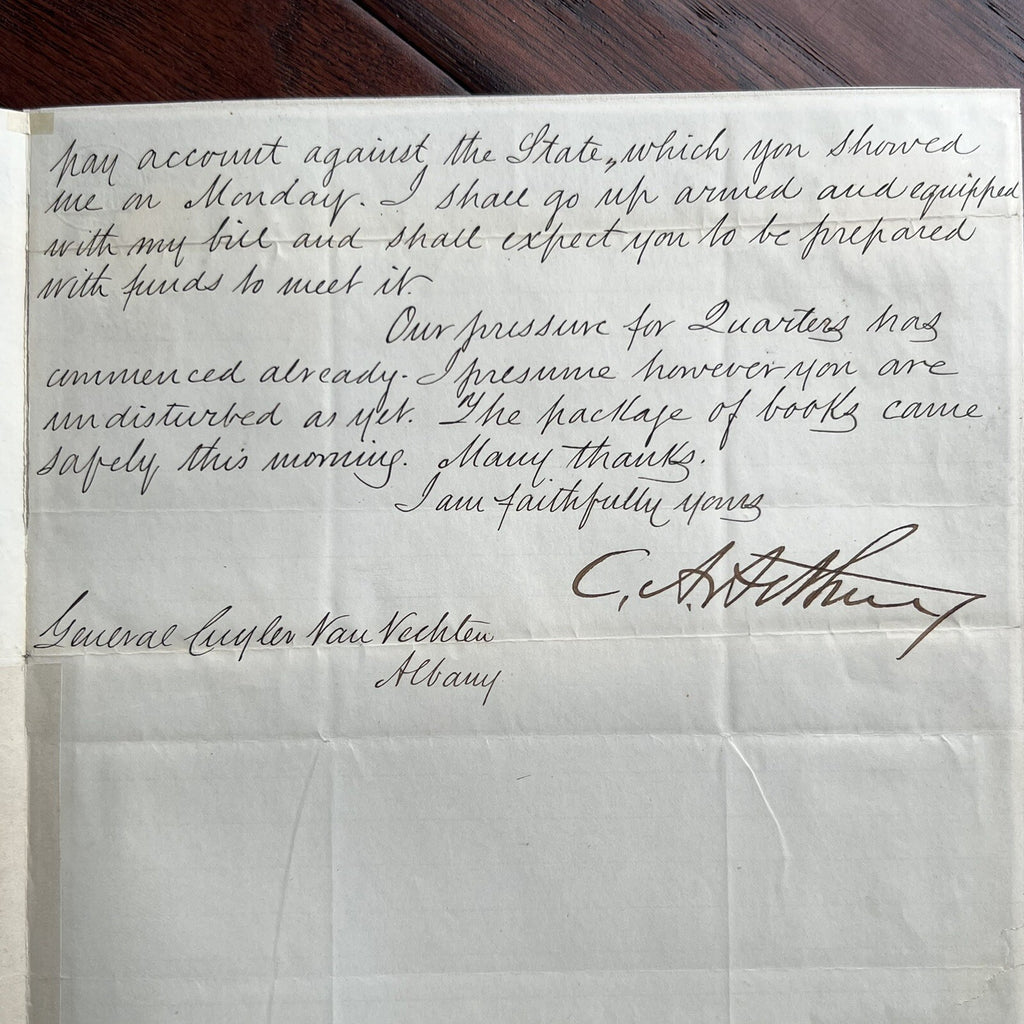 pay account against the State, which you showed
me on Monday. I shall go up armed and equipped
with my bill and shall expect you to be prepared
with funds to meet it.
Our pressure for Quarters has
commenced already. I presume however you are
undisturbed as yet. The package of books came
safely this morning. Many thanks.
I am faithfully yours
C. A. Arthur
General Cuyler Van Vechten
Albany